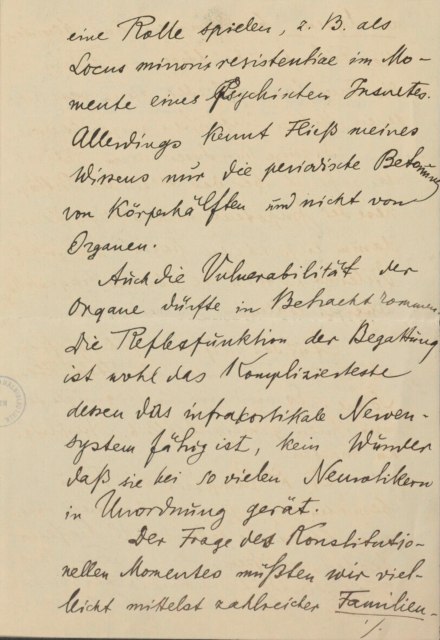 eine Rolle spielen, z. B. als
Locus minoris resistentiae im Mo-
mente eines Psychischen Insultes.
Allerdings kennt Fließ meines
Wissens nur die periodische Betonung
von Körperhälften und nicht von
Organen.
Auch die Vulnerabilität der
Organe dürfte in Betracht kommen.
Die Reflexfunktion der Begattung
ist wohl das Komplizierteste
dessen das infrakortikale Nerven-
system fähig ist, kein Wunder
daß sie bei so vielen Neurotikern
in Unordnung gerät.
Der Frage des Konstitutio-
nellen Momentes müßten wir viel-
leicht mittelst zahlreicher Familien-
./.